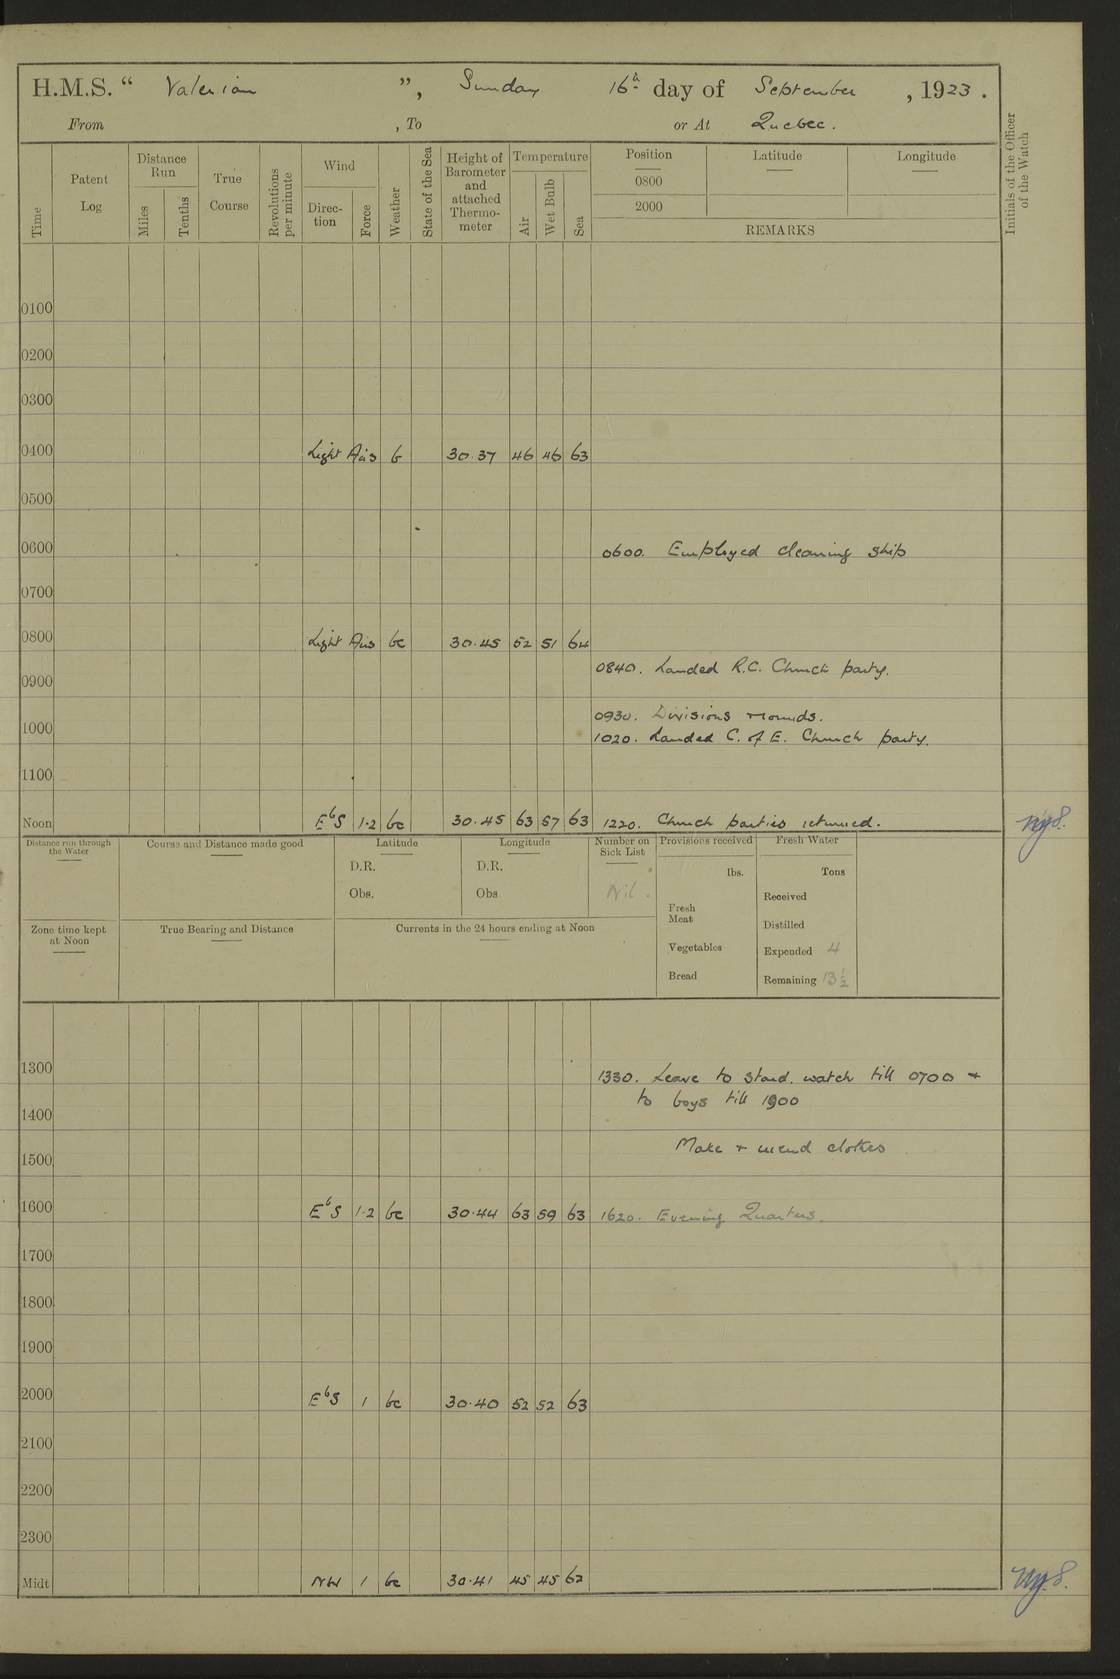 H.M.S. “ Valerian ”, Sunday 16th day of September, 1923.
From , To or At Quebec.
Time
Patent Log
Distance Run
Miles
Tenths
True Course
Revolutions per minute
Wind
Direc-tion
Force
Weather
State of the Sea
Height of Barometer and attached Thermo-meter
Temperature
Air
Wet Bulb
Sea
Position
0800
2000
Latitude
Longitude
REMARKS
Initials of the Officer of the Watch
0100
0200
0300
0400 Light Airs b 30.37 46 46 63
0500
0600 0600. Employed cleaning ship
0700
0800 Light Airs bc 30.45 52 51 64
0840. Landed R.C. Church party.
0900
0930. Divisions rounds.
1000
1020. Landed C. of E. Church party.
1100
Noon EbS 1-2 bc 30.45 63 57 63 1220. Church parties returned.
Distance run through the Water
Course and Distance made good
Latitude
D.R.
Obs.
Longitude
D.R.
Obs
Number on Sick List
Nil.
Provisions received
lbs.
Fresh Meat
Vegetables
Bread
Fresh Water
Tons
Received
Distilled
Expended 4
Remaining 13½
Zone time kept at Noon
True Bearing and Distance
Currents in the 24 hours ending at Noon
1300
1330. Leave to stard. watch till 0700 +
to boys till 1900
1400
Make + mend clothes
1500
1600 EbS 1-2 bc 30.44 63 59 63 1620. Evening Quarters.
1700
1800
1900
2000 EbS 1 bc 30.40 52 52 63
2100
2200
2300
Midt NW 1 bc 30.41 45 45 62